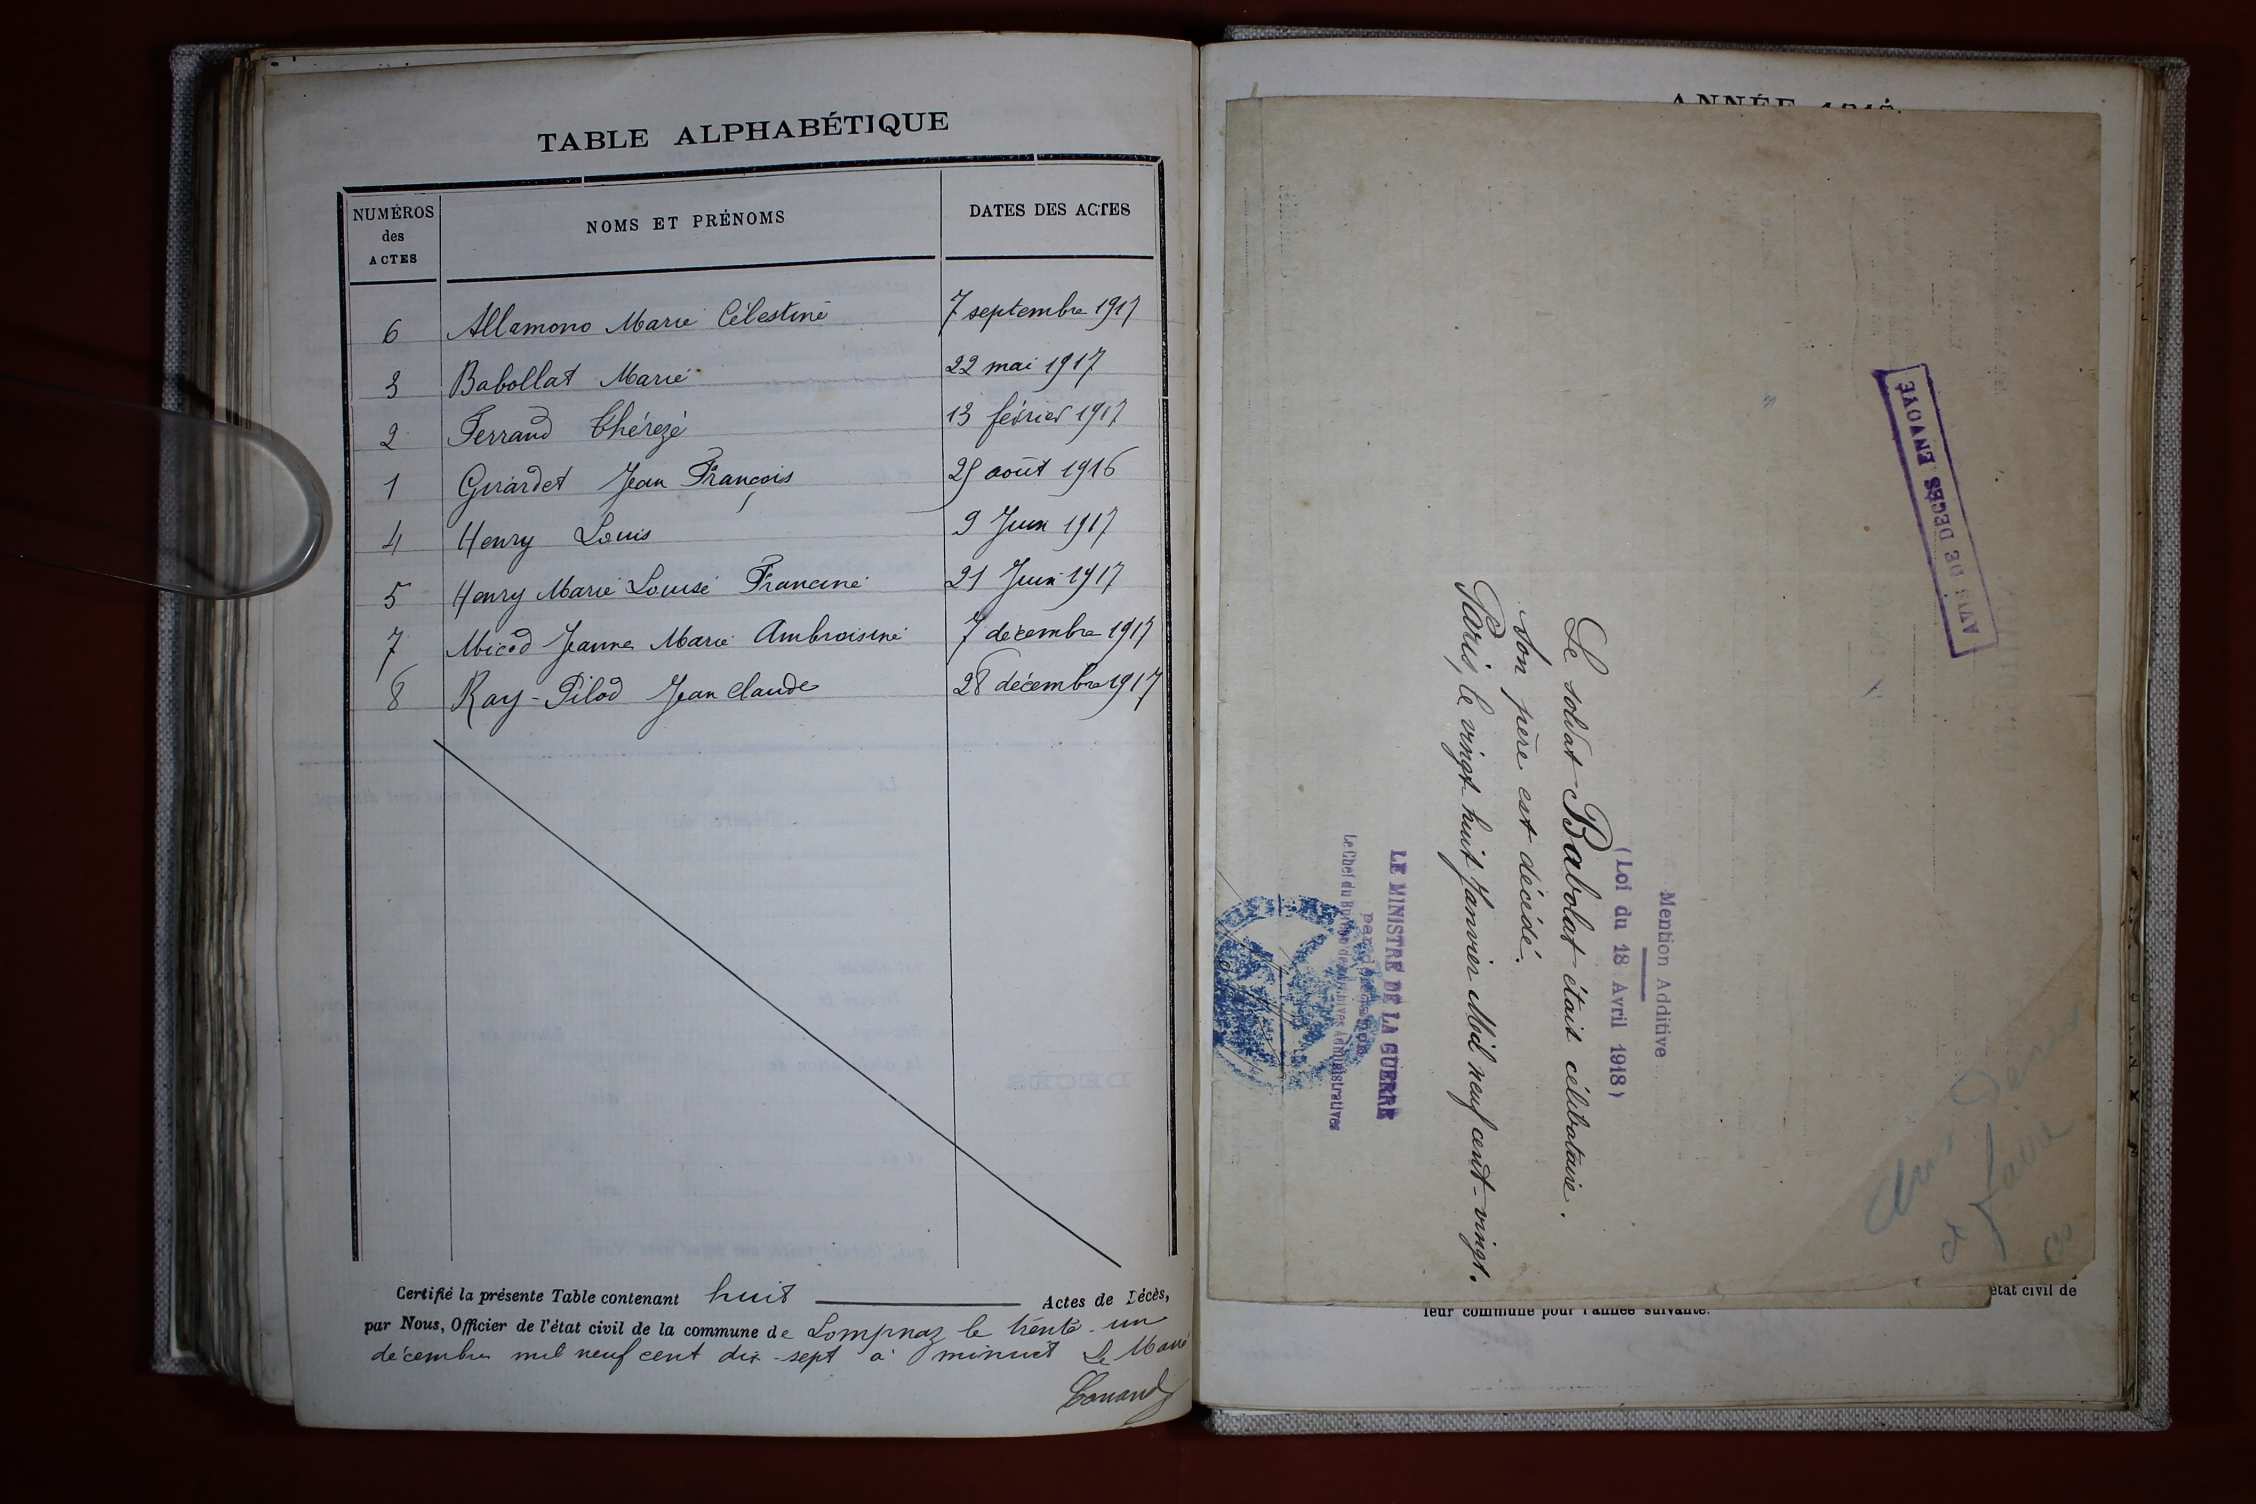 TABLE ALPHABÉTIQUE
NUMÉROS des ACTES
NOMS ET PRÉNOMS
DATES DES ACTES
6 Allamono Marie Célestine 7 septembre 1917
3 Babollat Marie 22 mai 1917
2 Ferrand Thérèze 13 février 1917
1 Girardet Jean François 25 août 1916
4 Henry Louis 9 Juin 1917
5 Henry Marie Louise Francine 21 Juin 1917
7 Micod Jeanne Marie Ambroisine 7 décembre 1917
8 Ray-Pilod Jean Claude 28 décembre 1917
Certifié la présente Table contenant huit Actes de Décès,
par Nous, Officier de l'état civil de la commune de Lompnaz le trente-un
décembre mil neuf cent dix-sept à minuit Le Maire
ANNÉE
AVIS DE DÉCÈS ENVOYÉ
Mention Additive
(Loi du 18 Avril 1918)
Le soldat Babolat était célibataire.
Son père est décédé.
Paris, le vingt-huit Janvier Mil neuf cent-vingt.
LE MINISTRE DE LA GUERRE
Le Chef du Bureau des Archives Administratives
état civil de
leur commune pour l'année suivante.